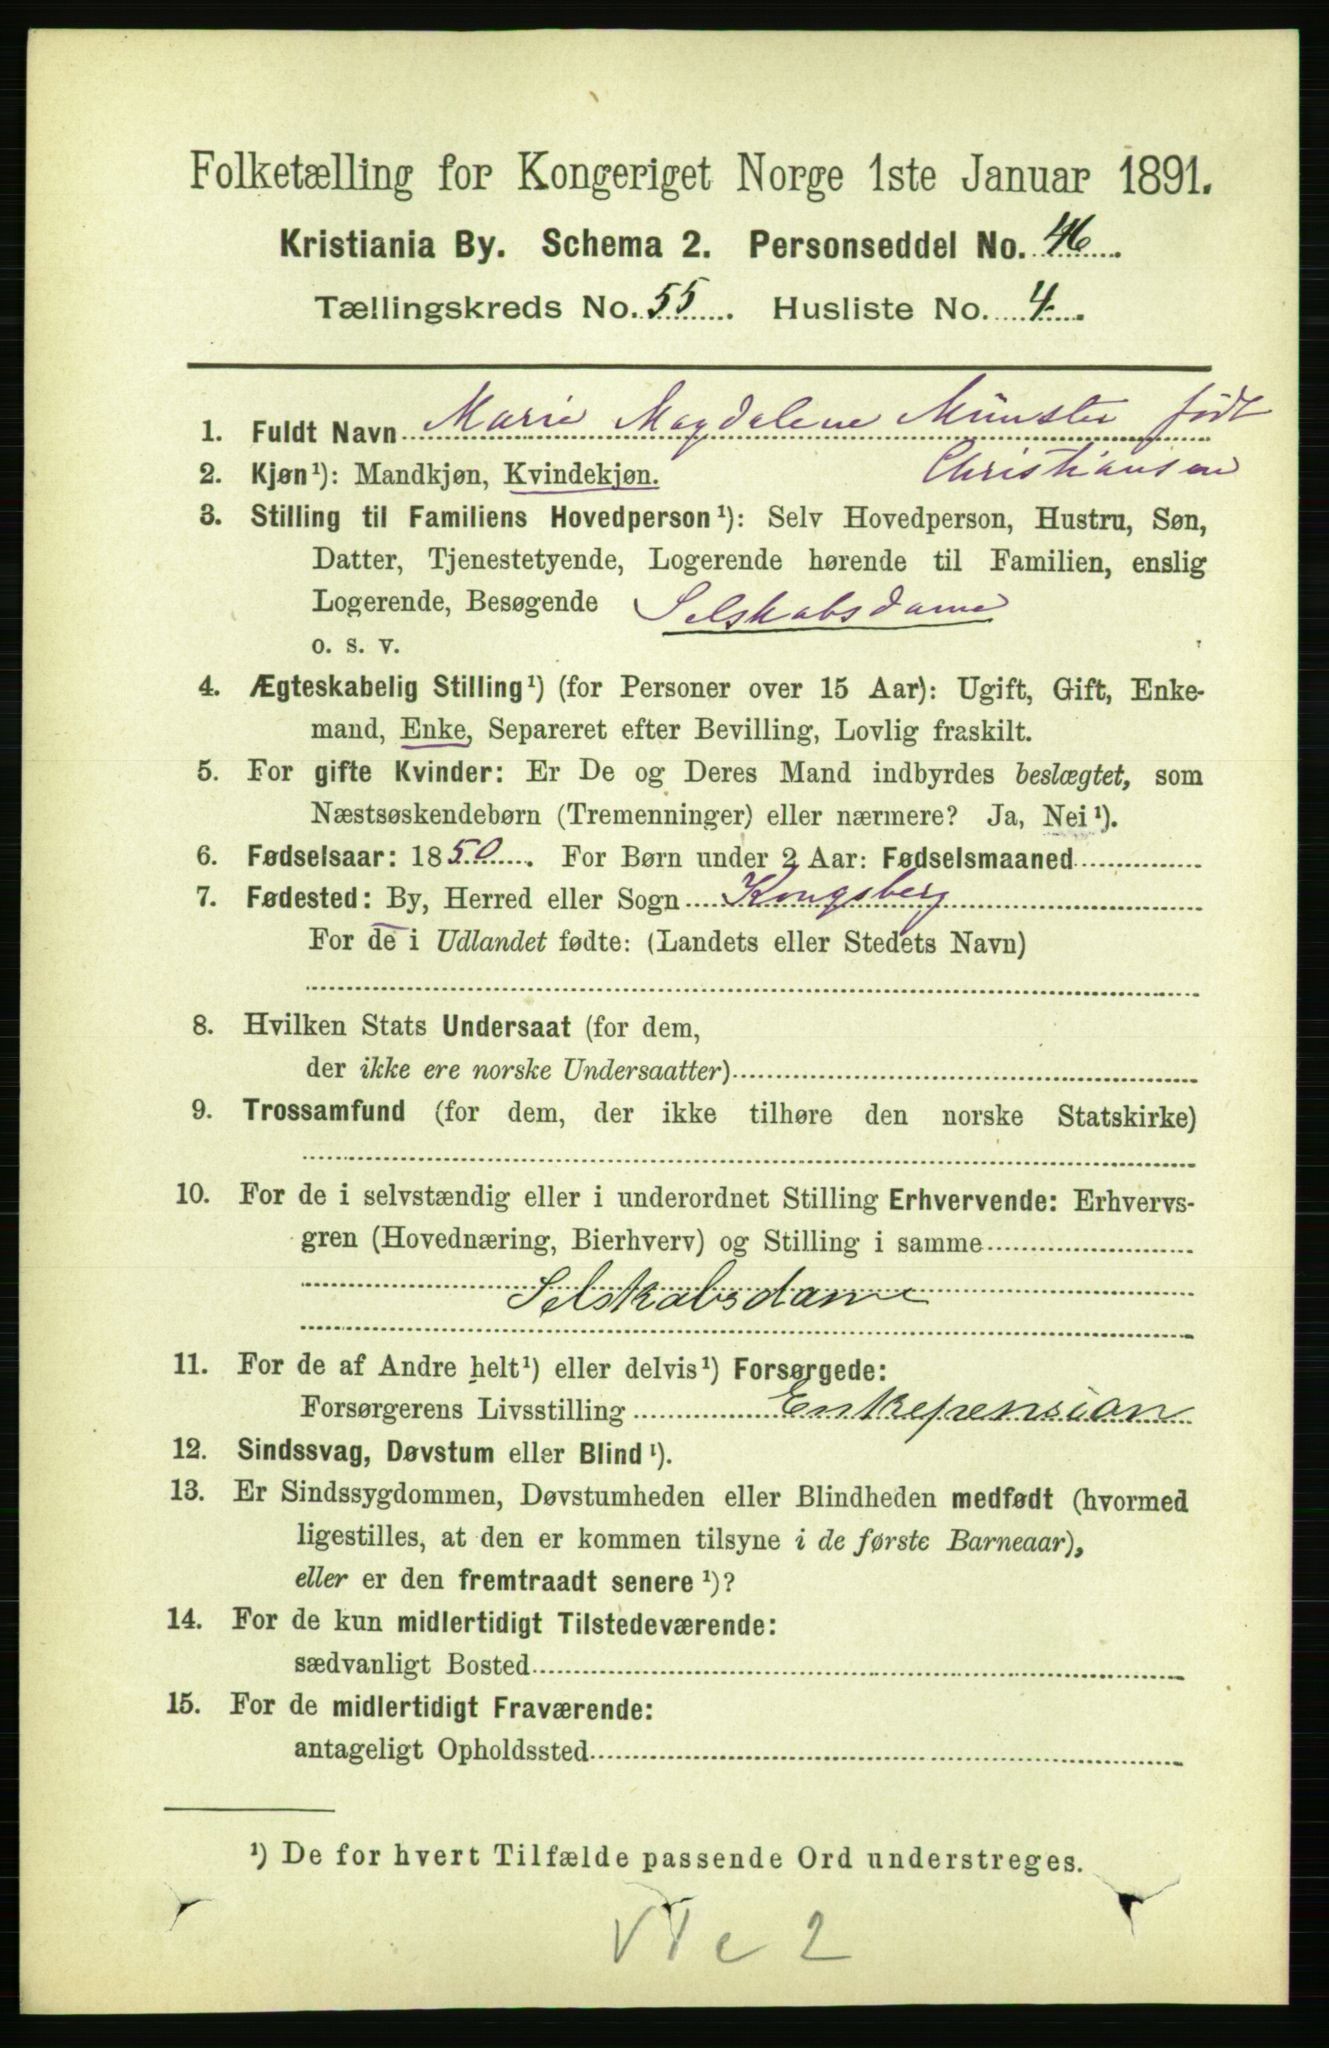 Folketælling for Kongeriget Norge 1ste Januar 1891.
Kristiania By. Schema 2. Personseddel No. 46
Tællingskreds No. 55. Husliste No. 4.
1. Fuldt Navn Marie Magdalene Münster født
Christiansen
2. Kjøn¹): Mandkjøn, Kvindekjøn.
3. Stilling til Familiens Hovedperson¹): Selv Hovedperson, Hustru, Søn,
Datter, Tjenestetyende, Logerende hørende til Familien, enslig
Logerende, Besøgende Selskabsdame
o. s. v.
4. Ægteskabelig Stilling¹) (for Personer over 15 Aar): Ugift, Gift, Enke-
mand, Enke, Separeret efter Bevilling, Lovlig fraskilt.
5. For gifte Kvinder: Er De og Deres Mand indbyrdes beslægtet, som
Næstsøskendebørn (Tremenninger) eller nærmere? Ja, Nei¹).
6. Fødselsaar: 1850. For Børn under 2 Aar: Fødselsmaaned
7. Fødested: By, Herred eller Sogn Kongsberg
For de i Udlandet fødte: (Landets eller Stedets Navn)
8. Hvilken Stats Undersaat (for dem,
der ikke ere norske Undersaatter)
9. Trossamfund (for dem, der ikke tilhøre den norske Statskirke)
10. For de i selvstændig eller i underordnet Stilling Erhvervende: Erhvervs-
gren (Hovednæring, Bierhverv) og Stilling i samme
Selskabsdame
11. For de af Andre helt¹) eller delvis¹) Forsørgede:
Forsørgerens Livsstilling Enkepension
12. Sindssvag, Døvstum eller Blind¹).
13. Er Sindssygdommen, Døvstumheden eller Blindheden medfødt (hvormed
ligestilles, at den er kommen tilsyne i de første Barneaar),
eller er den fremtraadt senere¹)?
14. For de kun midlertidigt Tilstedeværende:
sædvanligt Bosted
15. For de midlertidigt Fraværende:
antageligt Opholdssted
¹) De for hvert Tilfælde passende Ord understreges.
VI c 2